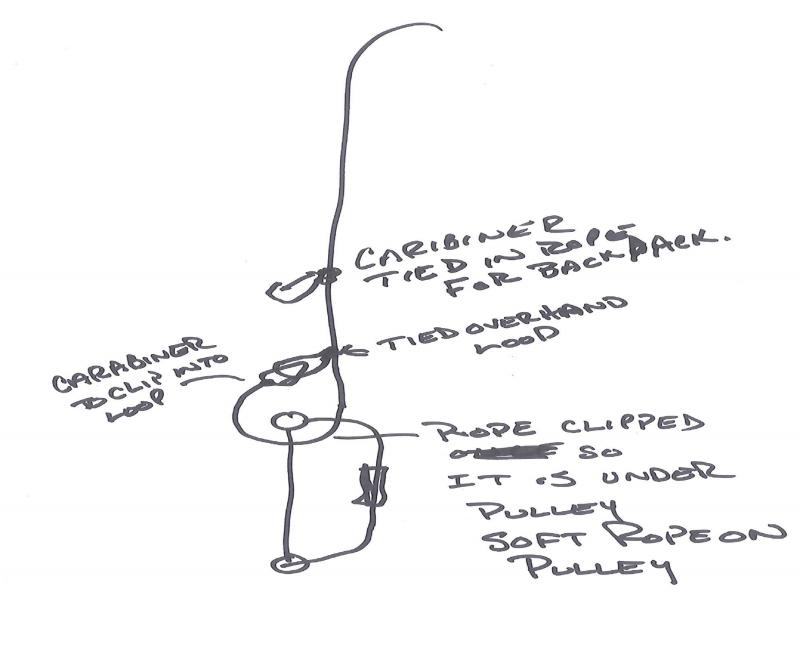 CARIBINER
TIED IN ROPE
FOR BACKPACK.
TIED OVERHAND
LOOD
CARABINER
TO CLIP INTO
LOOP
ROPE CLIPPED
SO
IT IS UNDER
PULLEY
SOFT ROPE ON
PULLEY